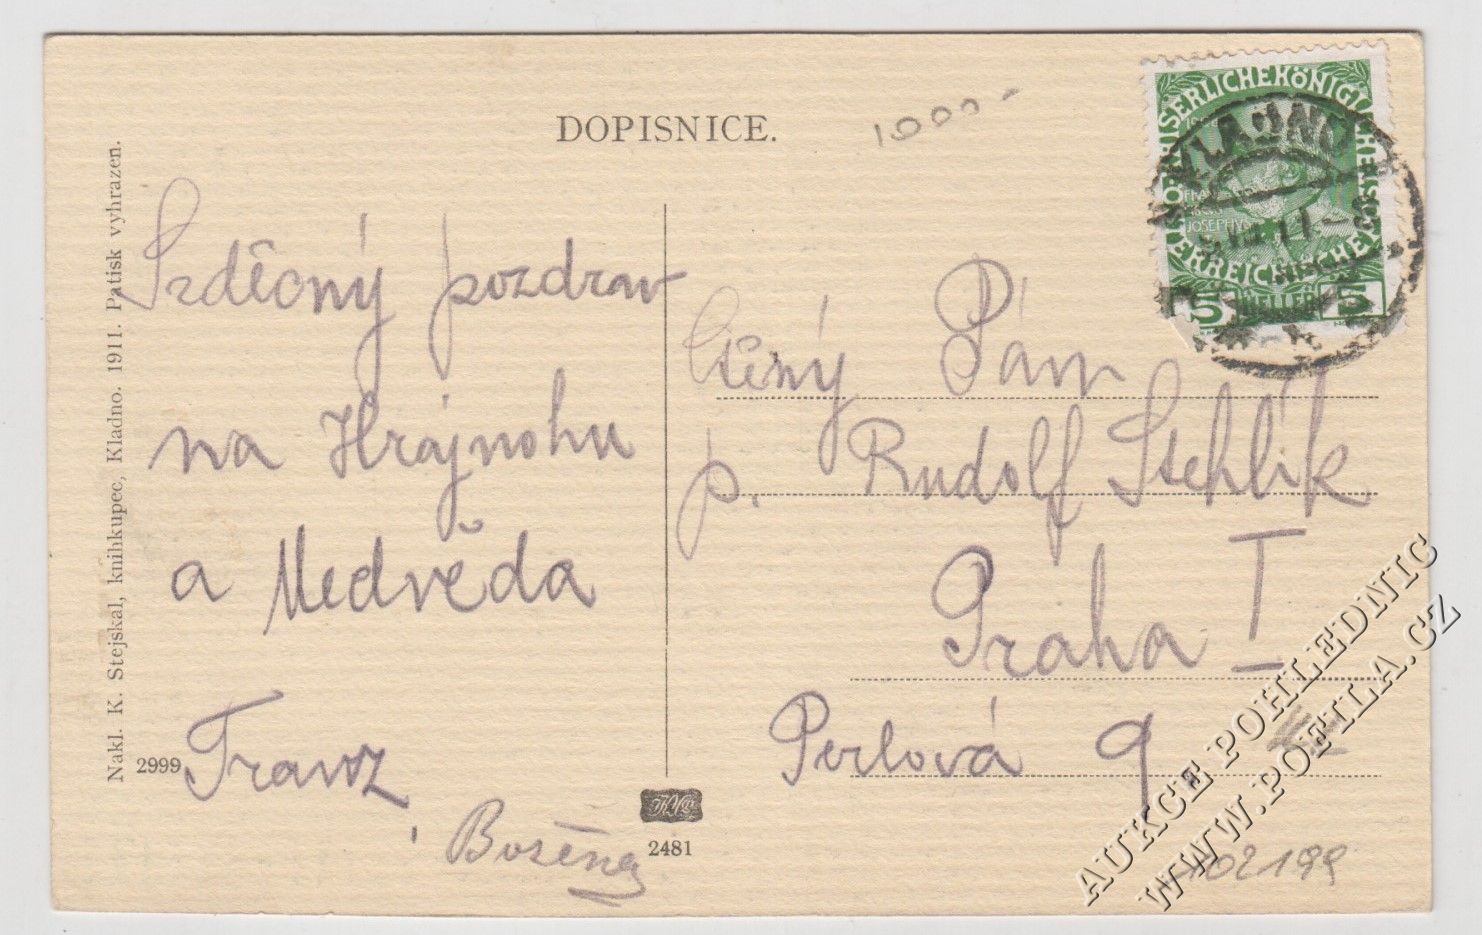 DOPISNICE.
1000-
Srděcný pozdrav
na Hrájnohu
a Medvěda
Franz
Božena
Ctěný Pán
p. Rudolf Stehlík
Praha I
Perlová 9
Nakl. K. Stejskal, knihkupec, Kladno. 1911. Patisk vyhrazen.
2999
2481
KAISERLICHEKÖNIGLICHE
ÖSTERREICHISCHE
JOSEPH
5 HELLER 5
KLADNO
VIII 11
102199
AUKCE POHLEDNIC
WWW.POFILA.CZ